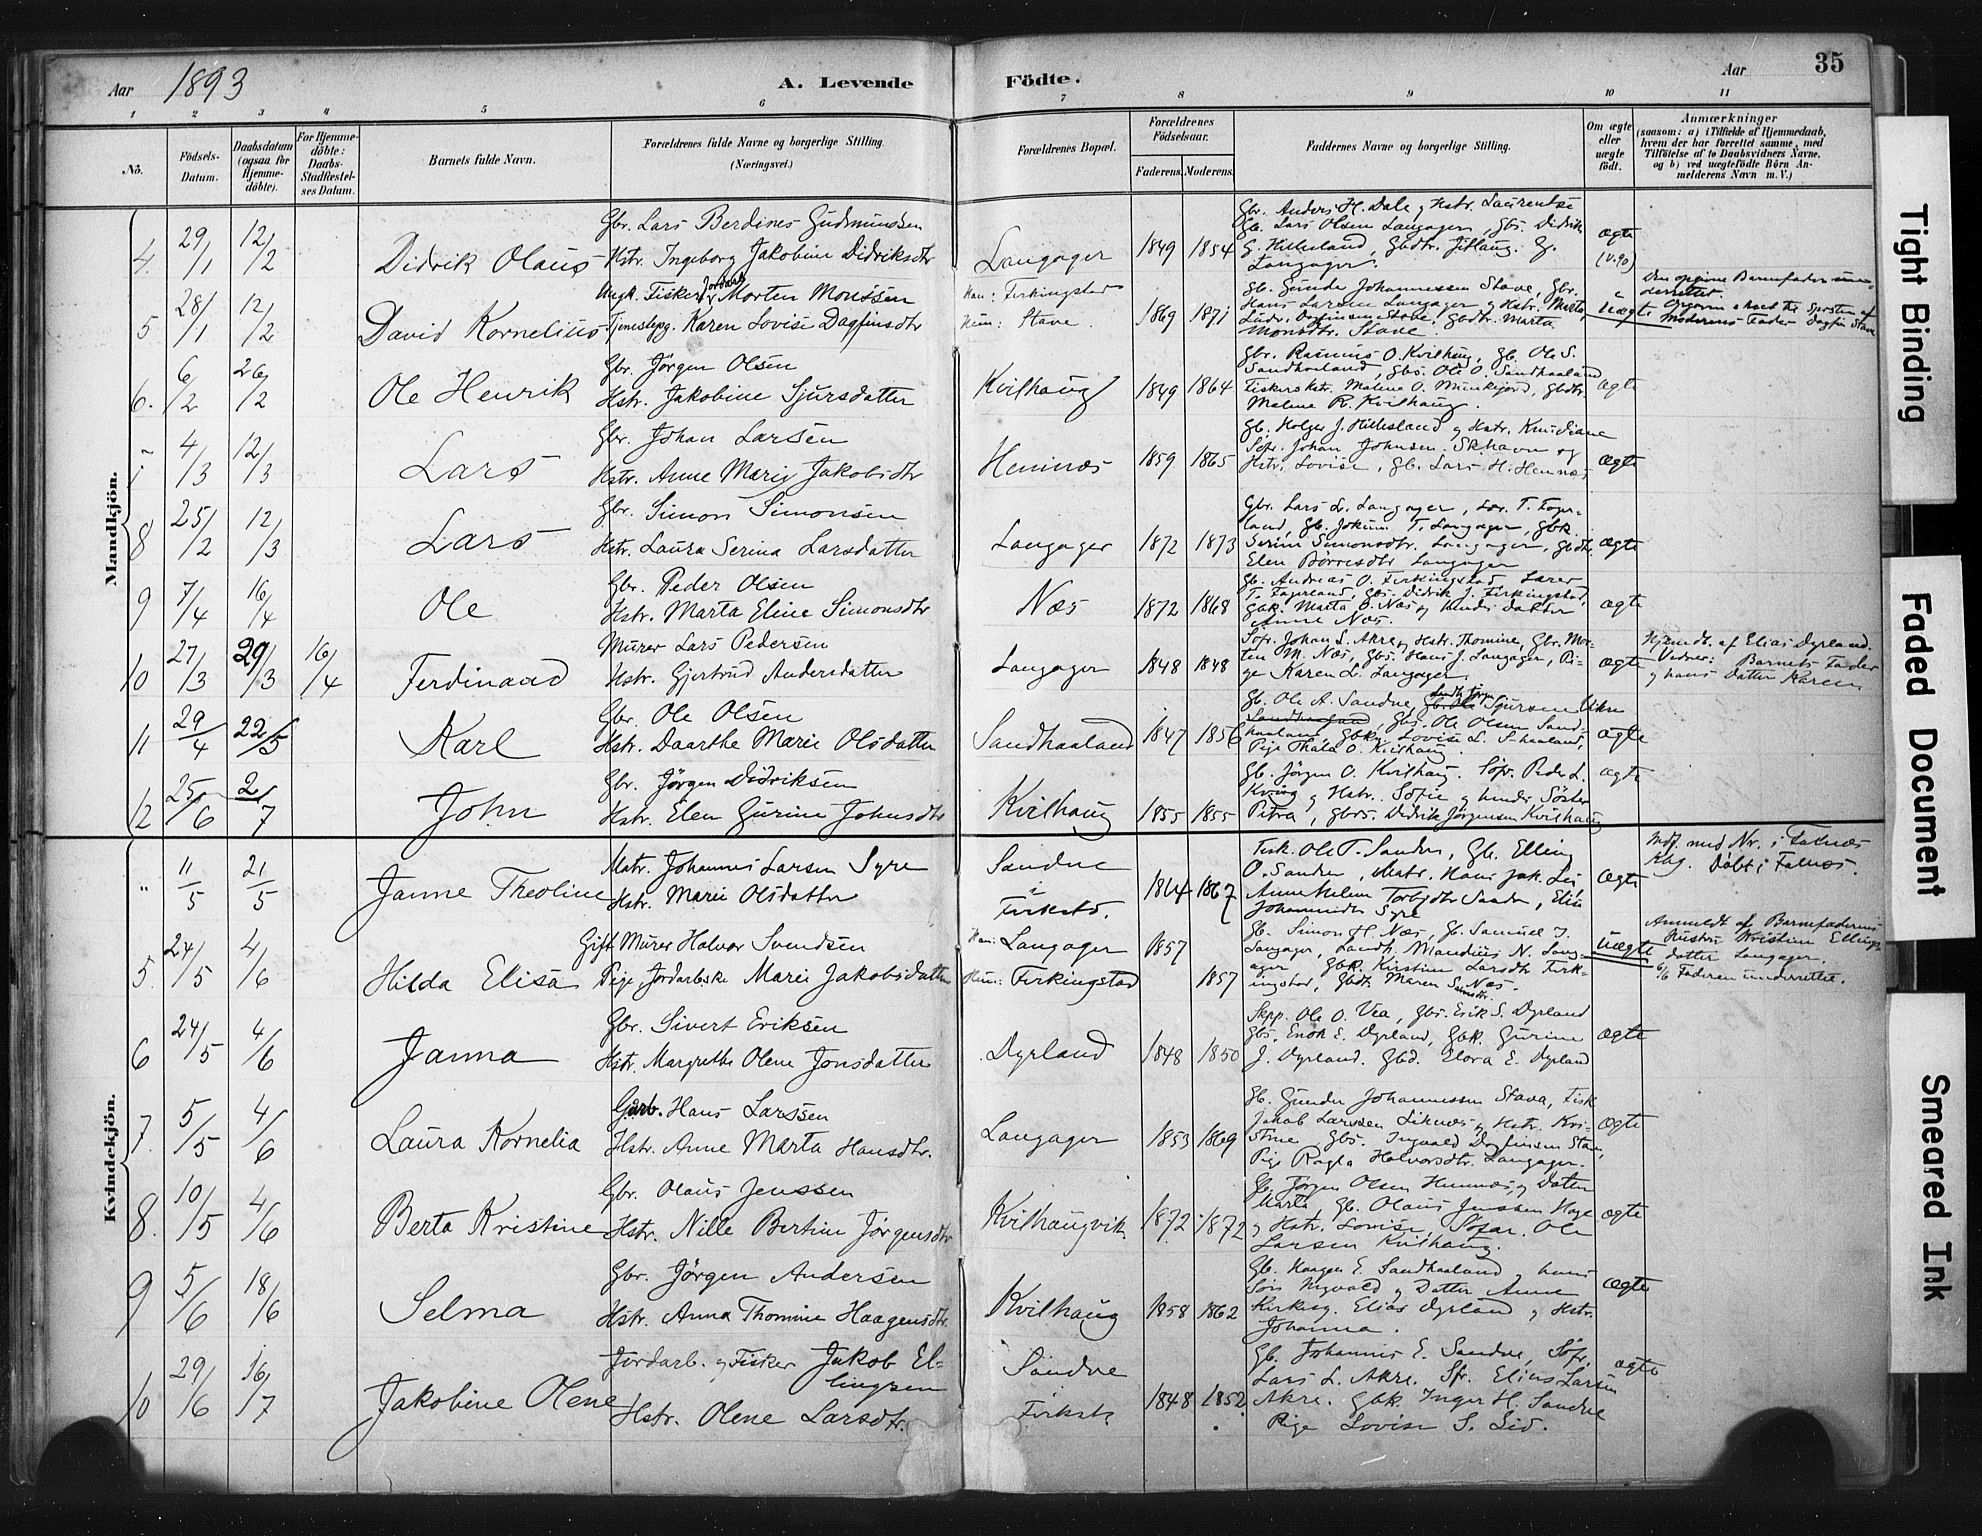 Aar 1893
A. Levende Födte.
Aar 35
1 2 3 4 5 6 7 8 9 10 11
No.
Födsels-Datum.
Daabsdatum (ogsaa for Hjemme-döbte).
For Hjemme-döbte: Daabs-Stadfæstel-ses Datum.
Barnets fulde Navn.
Forældrenes fulde Navne og borgerlige Stilling.
(Næringsvei.)
Forældrenes Bopæl.
Forældrenes Födselsaar.
Faderens. Moderens.
Faddernes Navne og borgerlige Stilling.
Om ægte eller uægte födt.
Anmærkninger
(saasom: a) i Tilfælde af Hjemmedaab, hvem der har forrettet samme, med Tilföielse af to Daabsvidners Navne, og b) ved uægtefödte Börn An-melderens Navn m. V.)
Mandkjön.
4. 29/1 12/2 Didrik Olaus
Gbr. Lars Berdines Gudmundsen
Hstr. Ingeborg Jakobine Didriksdtr
Langager 1849 1854
Gbr. Anders H. Dale og Hstr. Laurentse
Gb. Lars Olsen Langager, Gbs. Didrik
G. Hillesland, Gbdtr.
Langager.
ægte
(v. 90)
5 28/1 12/2 David Kornelius
Ungk. Fisker Jordarb Morten Monsen
Tjenestepg. Karen Lovise Dagfinsdtr
Han: Ferkingstad
Hun: Stave.
1869 1871
Gb. Gunde Johannessen Stave, Gbr.
Hans Larsen Langager og Hstr. Marta,
Ludv. Dagfinsen Stave. Gbdtr. Marta
Monsdtr. Stave
Uægte
Den opgivne Barnefader underrettet.
Moderens Fader Dagfin Stave
6. 6/2 26/2 Ole Henrik
Gbr. Jörgen Olsen
Hstr. Jakobine Sjursdatter
Kvilhaug 1849 1864
Gbr. Rasmus O. Kvilhaug, Gb. Ole S.
Sandhaaland, Gbs. Ole O. Sandhaaland
Fiskerskstr. Malene O. Munkejord, Gbdtr.
Malene R. Kvilhaug.
ægte
7 4/3 12/3 Lars
Gbr. Johan Larsen
Hstr. Anne Marie Jakobsdtr
Hemnes 1859 1865
Gb. Holger J. Hillesland og Hstr. Knudiane
Söfr. Johan Johnsen Skhavn og
Hstr. Lovise, Gb. Lars H. Hemnes
ægte
8 25/2 12/3 Lars
Gbr. Simon Simonsen
Hstr. Laura Serina Larsdatter
Langager 1872 1873
Gbr. Lars L. Langager, Lær. T. Fager-
land, Gb. Jokum T. Langager, Gbk
Serine Simonsdtr. Langager, Gbdtr.
Elen Börresdtr Langager
ægte
9 7/4 16/4 Ole
Gbr. Peder Olsen
Hstr. Marta Eline Simonsdtr
Næs 1872 1868
Gb. Andreas O. Ferkingstad, Lærer
T. Fagerland, Gbs. Didrik J. Ferkingstad,
Gbk. Marta O. Næs og hendes datter
Anne Næs.
ægte
10 27/3 29/3 16/4 Ferdinand
Murer Lars Pedersen
Hstr. Gjertrud Andersdatter
Langager 1848 1848
Söfr. Johan L. Akre og Hstr. Thomine, Gbr. Mor-
ten M. Næs, Gbs. Hans J. Langager, Pi-
ge Karen L. Langager
ægte
Hjemdt. af Elias Dyrland.
Vidner: Barnets Fader
og hans datter Karen.
11 29/4 22/5 Karl
Gbr. Ole Olsen
Hstr. Daarthe Marie Olsdatter
Sandhaaland 1847 1856
Gb. Ole A. Sandve, Sjursen Liknes
Sandhaaland, Gbs. Ole Olsen Sand-
haaland, Gbk. Lovise L. S-haaland,
Pige Thala O. Kvilhaug.
ægte
12 25/6 2/7 John
Gbr. Jörgen Didriksen
Hstr. Elen Gurine Johnsdtr
Kvilhaug 1855 1855
Gb. Jörgen O. Kvilhaug. Söfr. Peder L.
og Hstr. Sofie og hendes Söster
Petra, Gbrs. Didrik Jörgensen Kvilhaug
ægte
Kvindekjön.
" 11/5 21/5 Janne Theoline
Matr. Johannes Larsen Syre
Hstr. Marie Olsdatter
Sandve
Firkstd.
1864 1867
Fisk. Ole T. Sandve, Gb. Elling
O. Sandve, Matr. Hans Jak. Lie
Anne Malene Torbjdtr Sandve, Elen
Johannesdtr Syre
ægte
Mdf. med Nr. i Falnæs
Kbg. Döbt i Falnæs.
5. 24/5 4/6 Hilda Elisa
Gift Murer Halvor Svendsen
Pige Jordarbske Marie Jakobsdatter
Han: Langager 1857
Hun: Ferkingstad 1857
Gb. Simon H. Næs, Gb. Samuel I.
Langager, Landh. Mandius N. Lang-
ager Gbk. Kirstine Larsdtr Ferk-
ingstad, Gbdt. Maren Næs.
Uægte
Anmeldt af Barnefaderens
Hustru Kristine Ellings-
datter Langager.
6/6 Faderen underrettet.
6 24/5 4/6 Janna
Gbr. Sivert Eriksen
Hstr. Margrethe Olene Jonsdatter
Dyrland 1848 1850
Skpp. Ole O. Vea, Gbs. Erik S. Dyrland
Gbs. Enok E. Dyrland, Gbk. Gurine
J. Dyrland. Gbd. Elora E. Dyrland
ægte
7. 5/5 4/6 Laura Kornelia
Garb. Hans Larssen
Hstr. Anne Marta Hansdtr.
Langager 1853 1869
Gb. Gunder Johannessen Stava, Fisk
Jakob Larssen Liknes og Hstr. Kri-
stine Gbs. Ingvald Dagfinsen Stave,
Pige Ragla Halvorsdtr. Langager.
ægte
8. 10/5 4/6 Berta Kristine
Gbr. Olaus Jenssen
Hstr. Nille Bertine Jörgensdtr
Kvilhaugvik 1872 1872
Gb. Jörgen Olsen Hemnes og Datter
Marta, Gb. Olaus Jenssen Hage
og Hstr. Lovise, Söfar. Ole
Larsen Kvilhaug.
ægte
9 5/6 18/6 Selma
Gbr. Jörgen Andersen
Hstr. Anna Thomine Haagensdtr.
Kvilhaug 1858 1862
Gb. Haagen E. Sandhaaland, hans
Sön Ingvald og Datter Anne
Kirkesg. Elias Dyrland og Hstr.
Johanna.
ægte
10 29/6 16/7 Jakobine Olene
Jordarb. og Fisker Jakob El-
lingsen
Hstr. Olene Larsdtr.
Sandve
Firkst.
1848 1852
Gb. Johannes E. Sandve, Söfr.
Lars L. Akre. Sfr. Elias Larsen
Akre. Gbk. Inger H. Sandve
Pige Lovise S. Lid.
ægte
Tight Binding
Faded Document
Smeared Ink